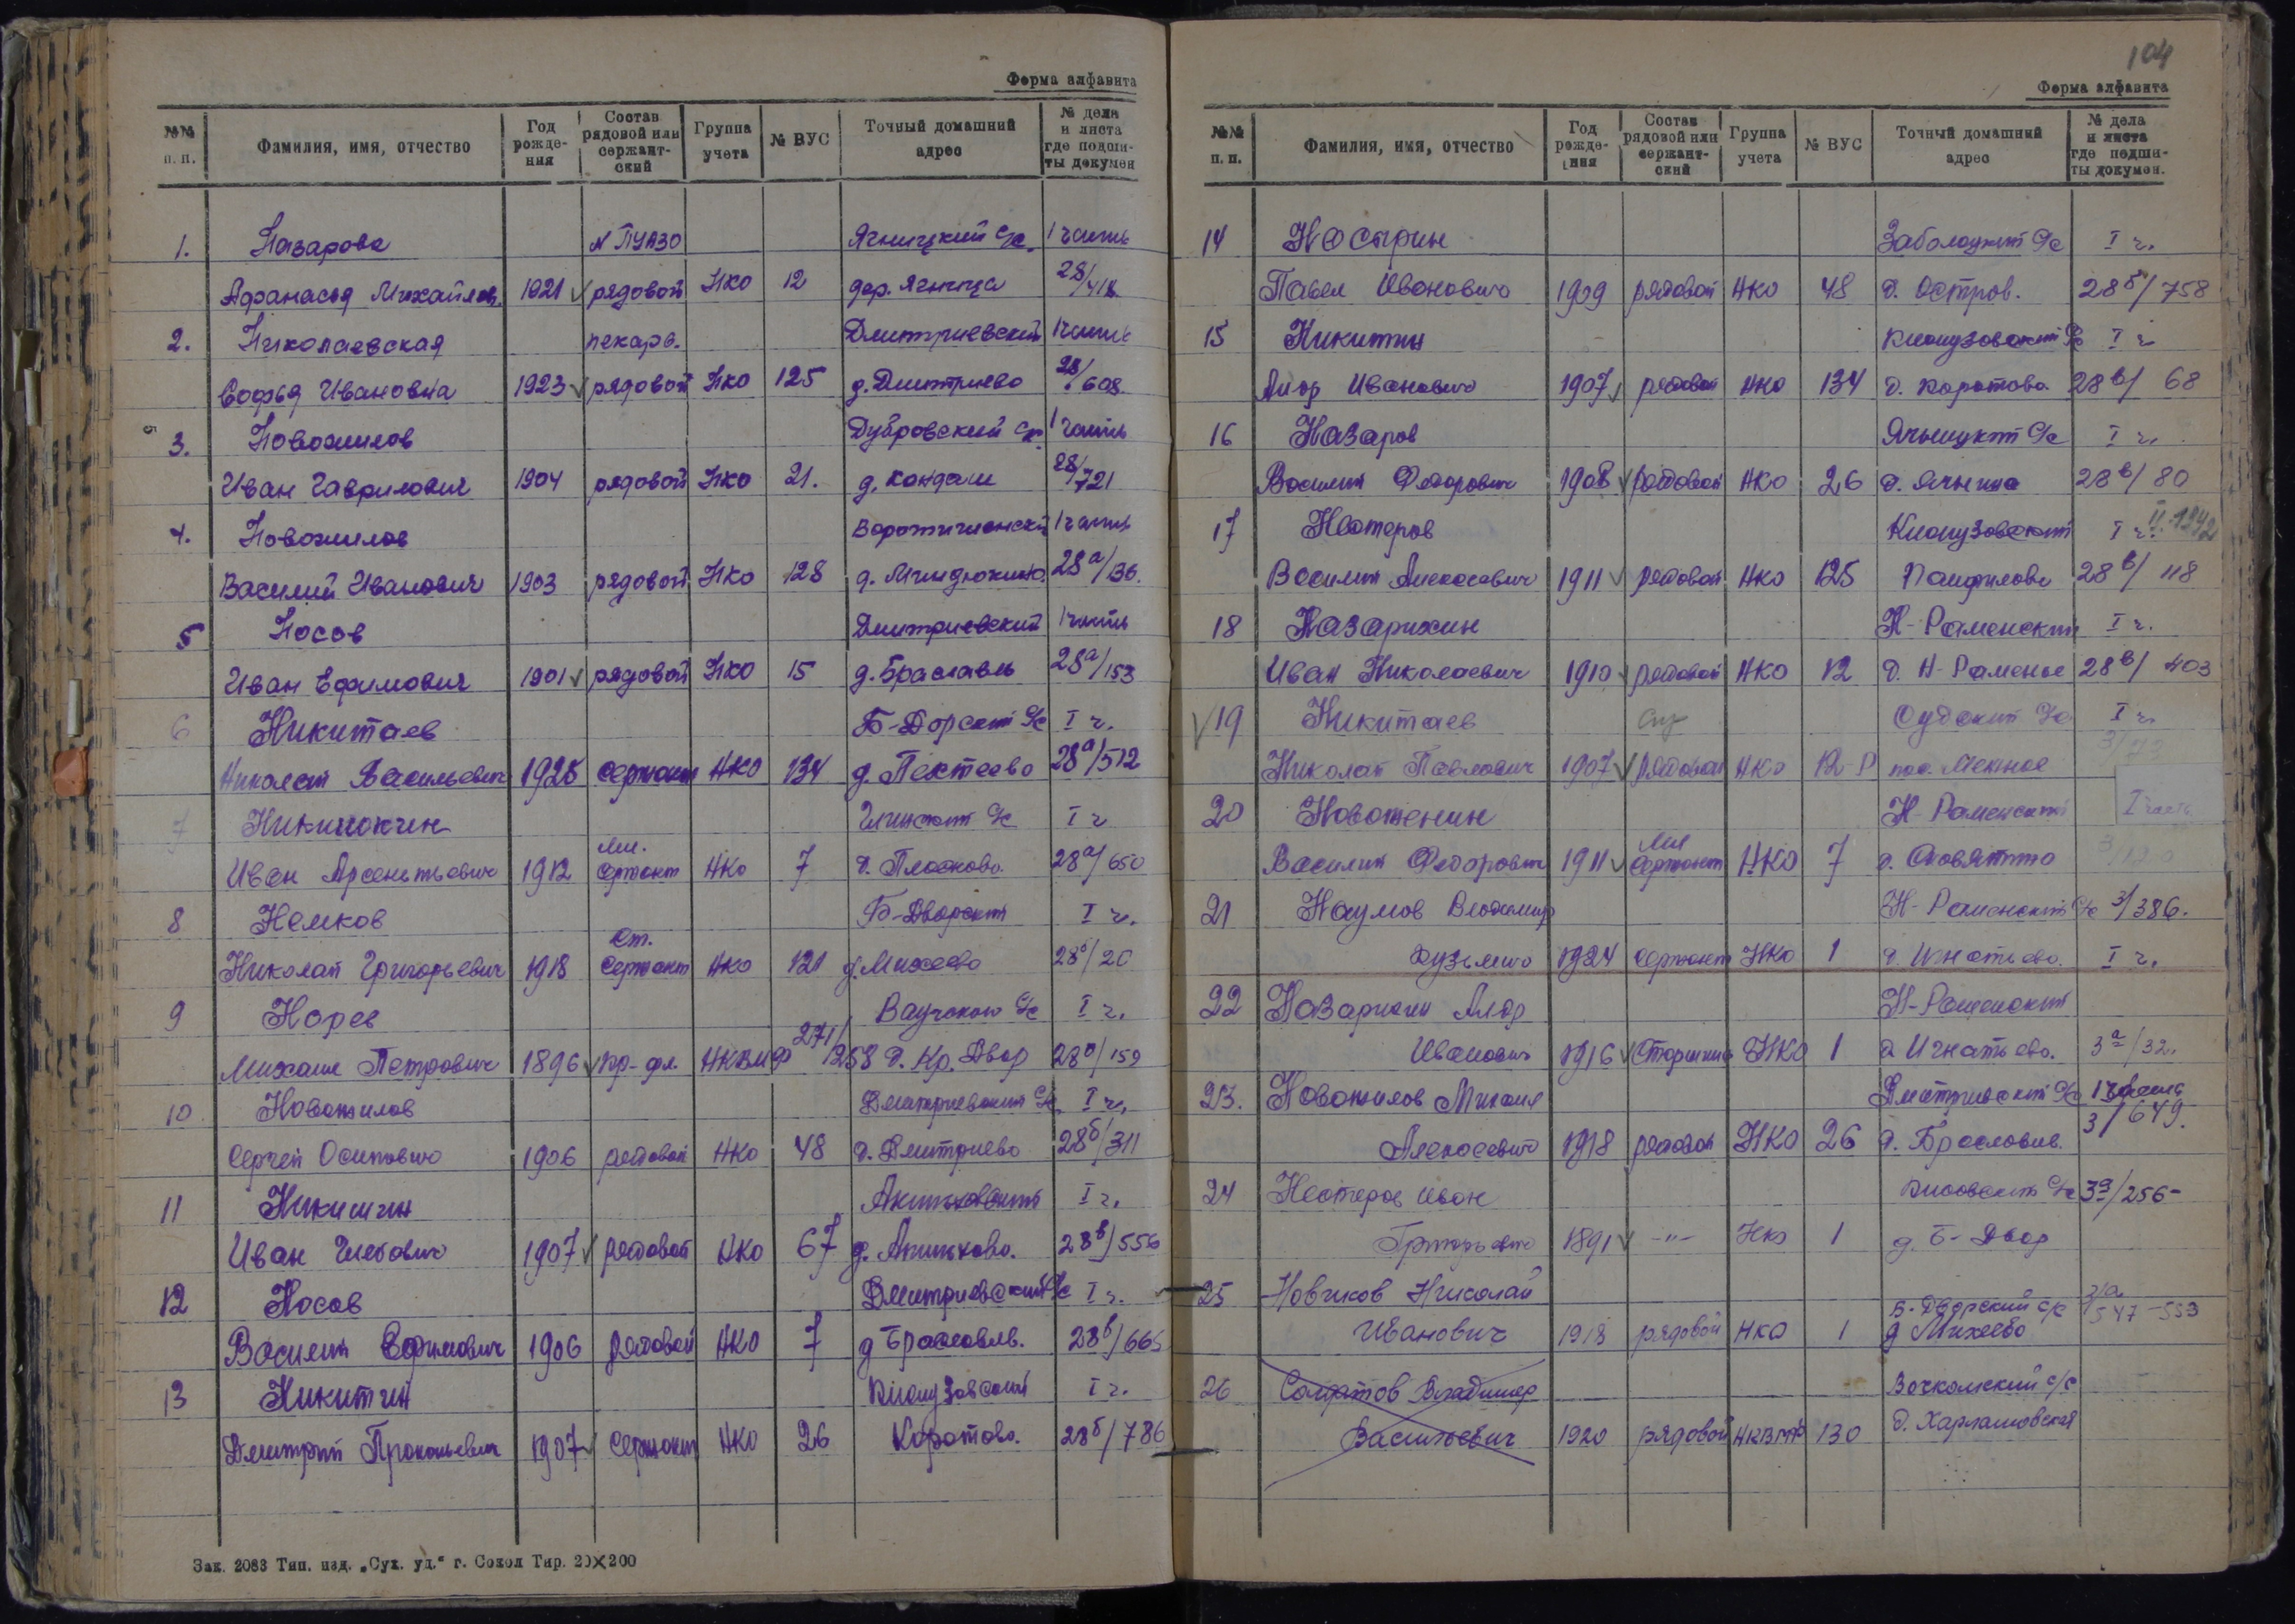 Форма алфавита
№№ п. п. Фамилия, имя, отчество Год рождения Состав рядовой или сержантский Группа учета № ВУС Точный домашний адрес № дела и листа где подшиты докумен
1. Назарова N ПУАЗО Ягницкий с/с. 1 часть
Афанасья Михайлов. 1921 рядовой НКО 12 дер. Ягница 28/418
2. Николаевская пекарь. Дмитриевский 1 часть
Софья Ивановна 1923 рядовой НКО 125 д. Дмитриево 28/608
3. Новожилов Дубровский с/с. 1 часть
Иван Гаврилович 1904 рядовой НКО 21. д. Кондаш 28/721
4. Новожилов 1 часть
Василий Иванович 1903 рядовой НКО 128 д. 28а/136.
5 Носов Дмитриевский 1 часть
Иван Ефимович 1901 рядовой НКО 15 д. Браславль 28а/153
6 Никитаев Б-Дорский с/с I ч.
Николай Васильевич 1925 сержант НКО 134 д. Пектеево 28а/512
7 с/с I ч
Иван Арсентьевич 1912 мл. сержант НКО 7 д. Плосково. 28а/650
8 Немков Б-Дворский I ч.
Николай Григорьевич 1918 Ст. сержант НКО 121 д. Михеево 28б/20
9 Норев с/с I ч.
Михаил Петрович 1896 кр-фл. НКВМФ 271/258 д. Кр. Двор 28б/159
10 Новожилов Дмитриевский с/с. I ч.
Сергей Осипович 1906 рядовой НКО 48 д. Дмитриево 28б/311
11 Никишин Аниковский I ч.
Иван Глебович 1907 рядовой НКО 67 д. 28в/556
12 Носов Дмитриевский с/с I ч.
Василий Ефимович 1906 рядовой НКО 7 д Браславль. 28в/665
13 Никитин I ч.
Дмитрий Прокопьевич 1907 сержант НКО 26 Коротово. 28б/786
Зак. 2083 Тип. изд. „Сух. уд.“ г. Сокол Тир. 20×200
104
Форма алфавита
№№ п. п. Фамилия, имя, отчество Год рождения Состав рядовой или сержантский Группа учета № ВУС Точный домашний адрес № дела и листа где подшиты докумен.
14 Насырин Заболоцкий с/с I ч.
Павел Иванович 1909 рядовой НКО 48 д. Остров. 28б/758
15 Никитин I ч
Иванович 1907 рядовой НКО 134 д. Коротово 28в/68
16 Назаров Ягницкий с/с I ч.
Василий Федорович 1908 рядовой НКО 26 д. Ягница 28в/80
17 Нестеров I ч. II. 1242
Василий Алексеевич 1911 рядовой НКО 125 Панфилово 28в/118
18 Назарихин Н-Раменский I ч.
Иван Николаевич 1910 рядовой НКО 12 д. Н-Раменье 28в/403
19 Никитаев Судский с/с I ч.
Николай Павлович 1907 рядовой НКО 12-Р пос. 3/
20 Новоженин Н-Раменский I часть
Василий Федорович 1911 мл сержант НКО 7 д.
21 Наумов Владимир Н-Раменский с/с 3/386.
Кузьмич 1924 сержант НКО 1 д. Игнатьево. I ч.
22 Назарихин Н-Раменский
Иванович 1916 Старшина НКО 1 д Игнатьево. 3а/32.
23. Новожилов Михаил Дмитриевский с/с 1 часть
Алексеевич 1918 рядовой НКО 26 д. Браславль. 3/649.
24 Нестеров Иван с/с 3а/256-
Григорьевич 1891 -"- НКО 1 д. Б-Двор
25 Новиков Николай Б-Дворский с/с 3/а
Иванович 1918 рядовой НКО 1 д Михеево 547-553
26 Солдатов Владимир с/с
Васильевич 1920 рядовой НКВМФ 130 д. Харламовская